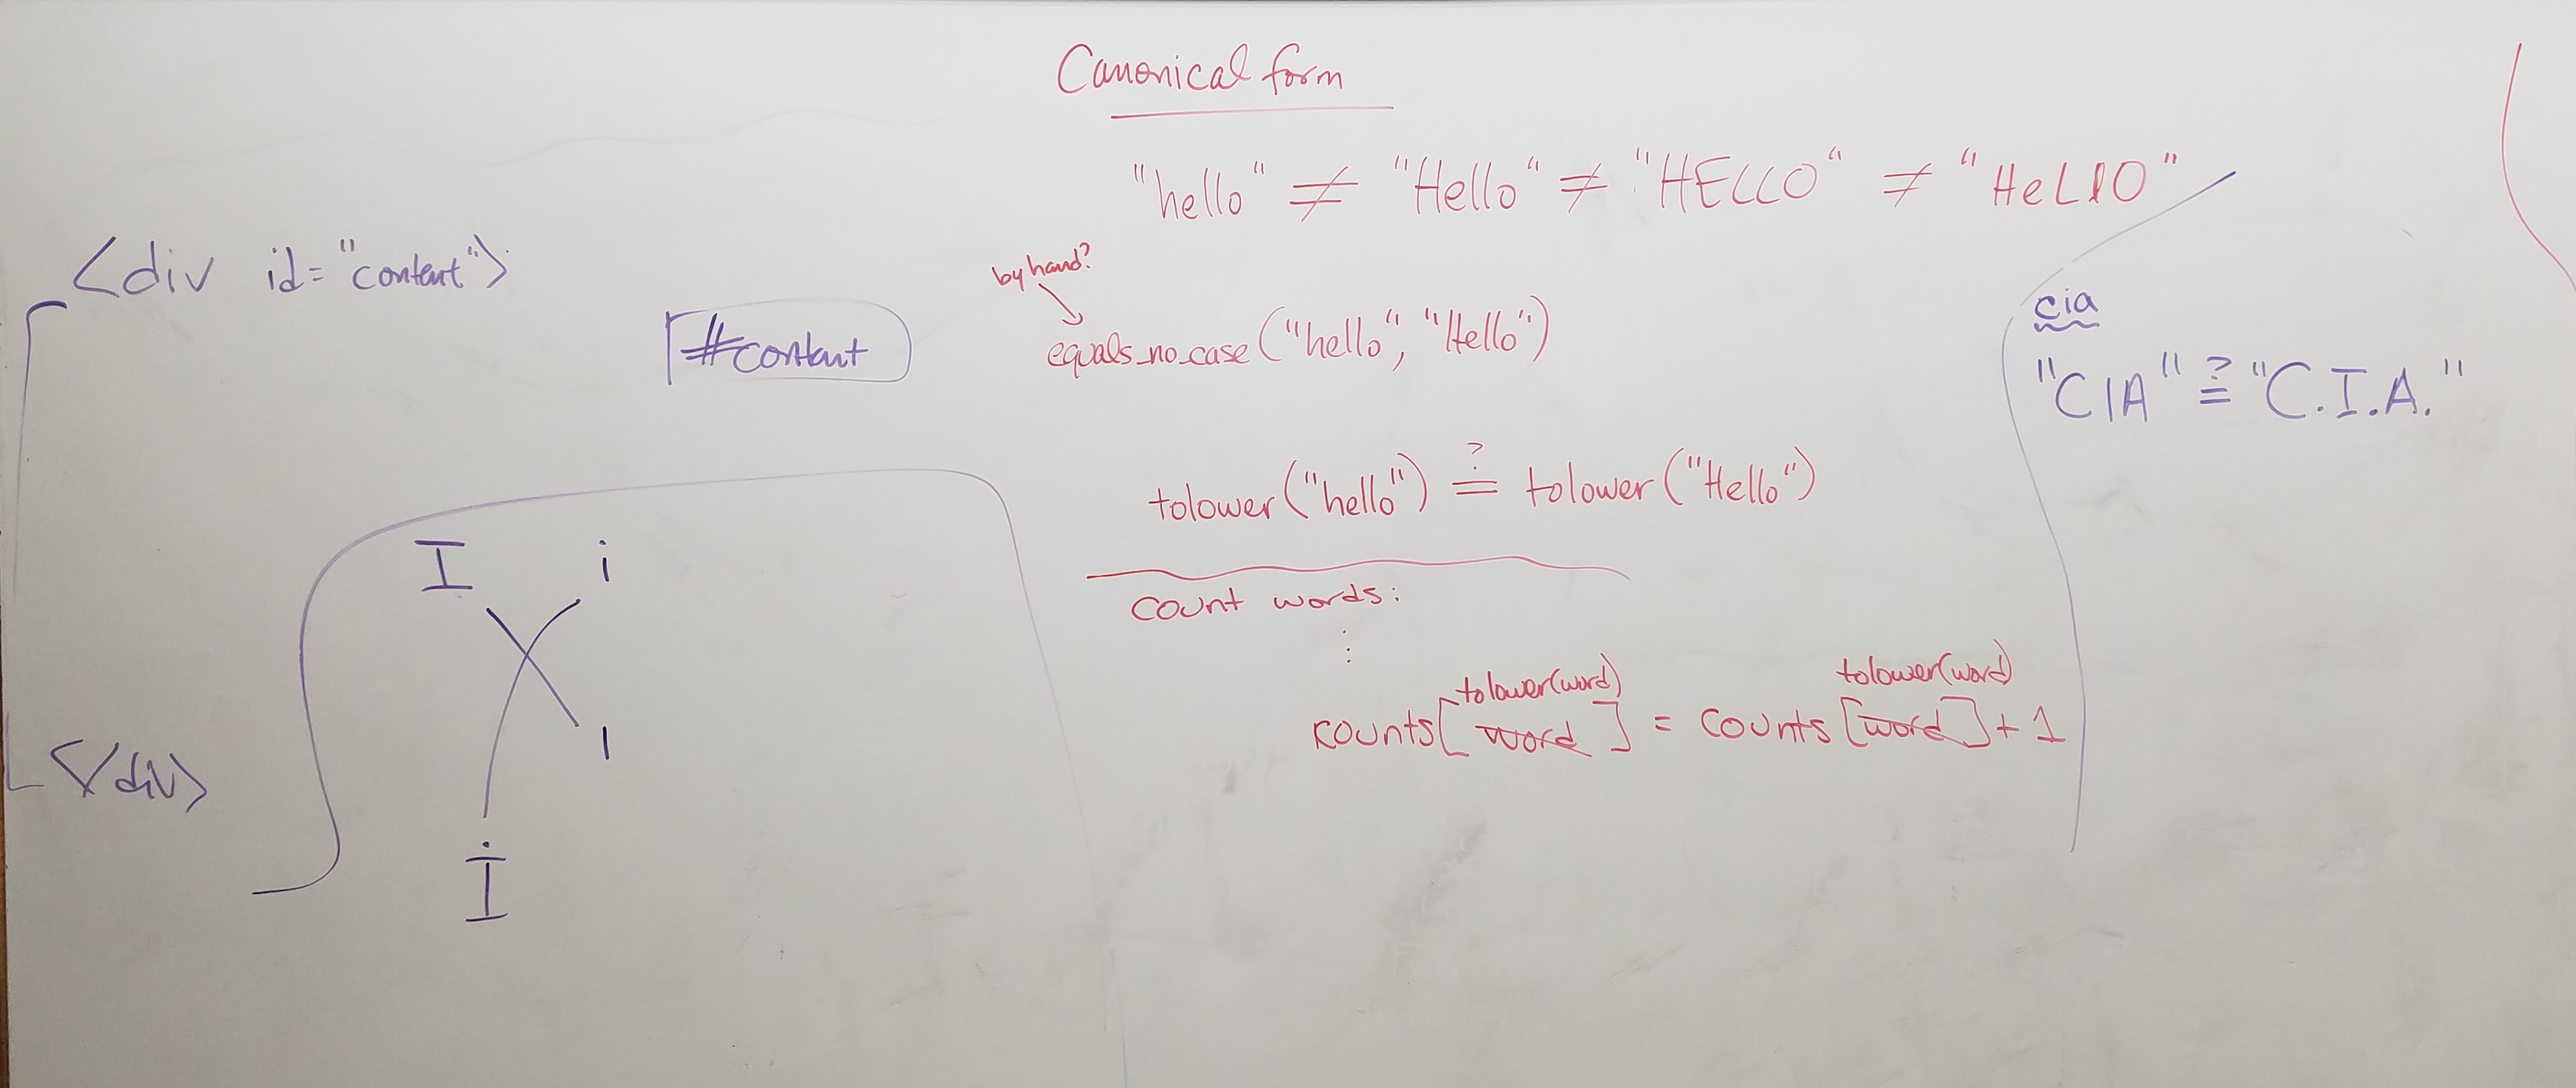 Canonical form
"hello" ≠ "Hello" ≠ "HELLO" ≠ "HeLlO"
by hand?
equals_no_case("hello", "Hello")
tolower("hello") ≟ tolower("Hello")
count words:
⋮
tolower(word) tolower(word)
counts[word] = counts[word] + 1
<div id="content">
#content
</div>
I i
ı
İ
cia
"CIA" ≟ "C.I.A."